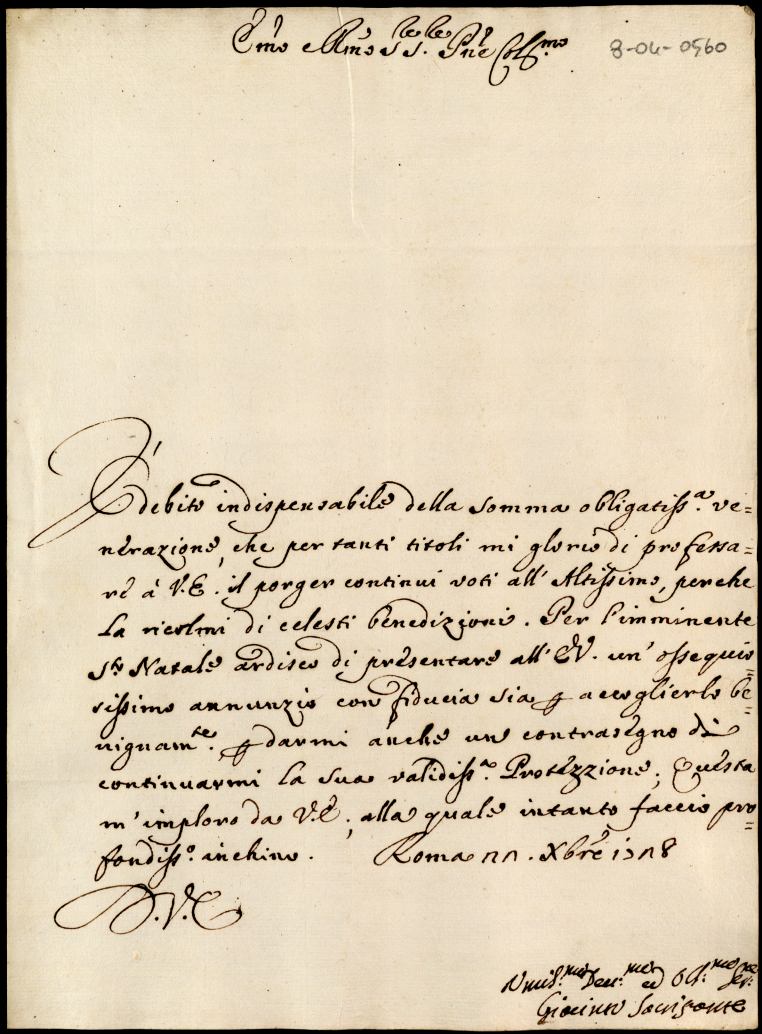 Emo e Rmo Sig.re Sig.re Pne Col.mo 8-04-0560
È debito indispensabile della somma obligatiss.a ve=
nerazione, che per tanti titoli mi glorio di professa=
re à V.E. il porger continui voti all' Altissimo, perche
la ricolmi di celesti benedizioni. Per l'imminente
S.to Natale ardisco di presentare all' E.V. un' ossequio=
sissimo annunzio con fiducia sia p accoglierlo be=
nignam.te, p darmi anche un contrasegno di
continuarmi la sua validiss.a Protezzione; Questa
m' imploro da V.E., alla quale intanto faccio pro=
fondiss.o inchino. Roma Xbre
D.V.E.
Umil.mo Deu.mo ed Obl.mo Ser.re
Giacinto